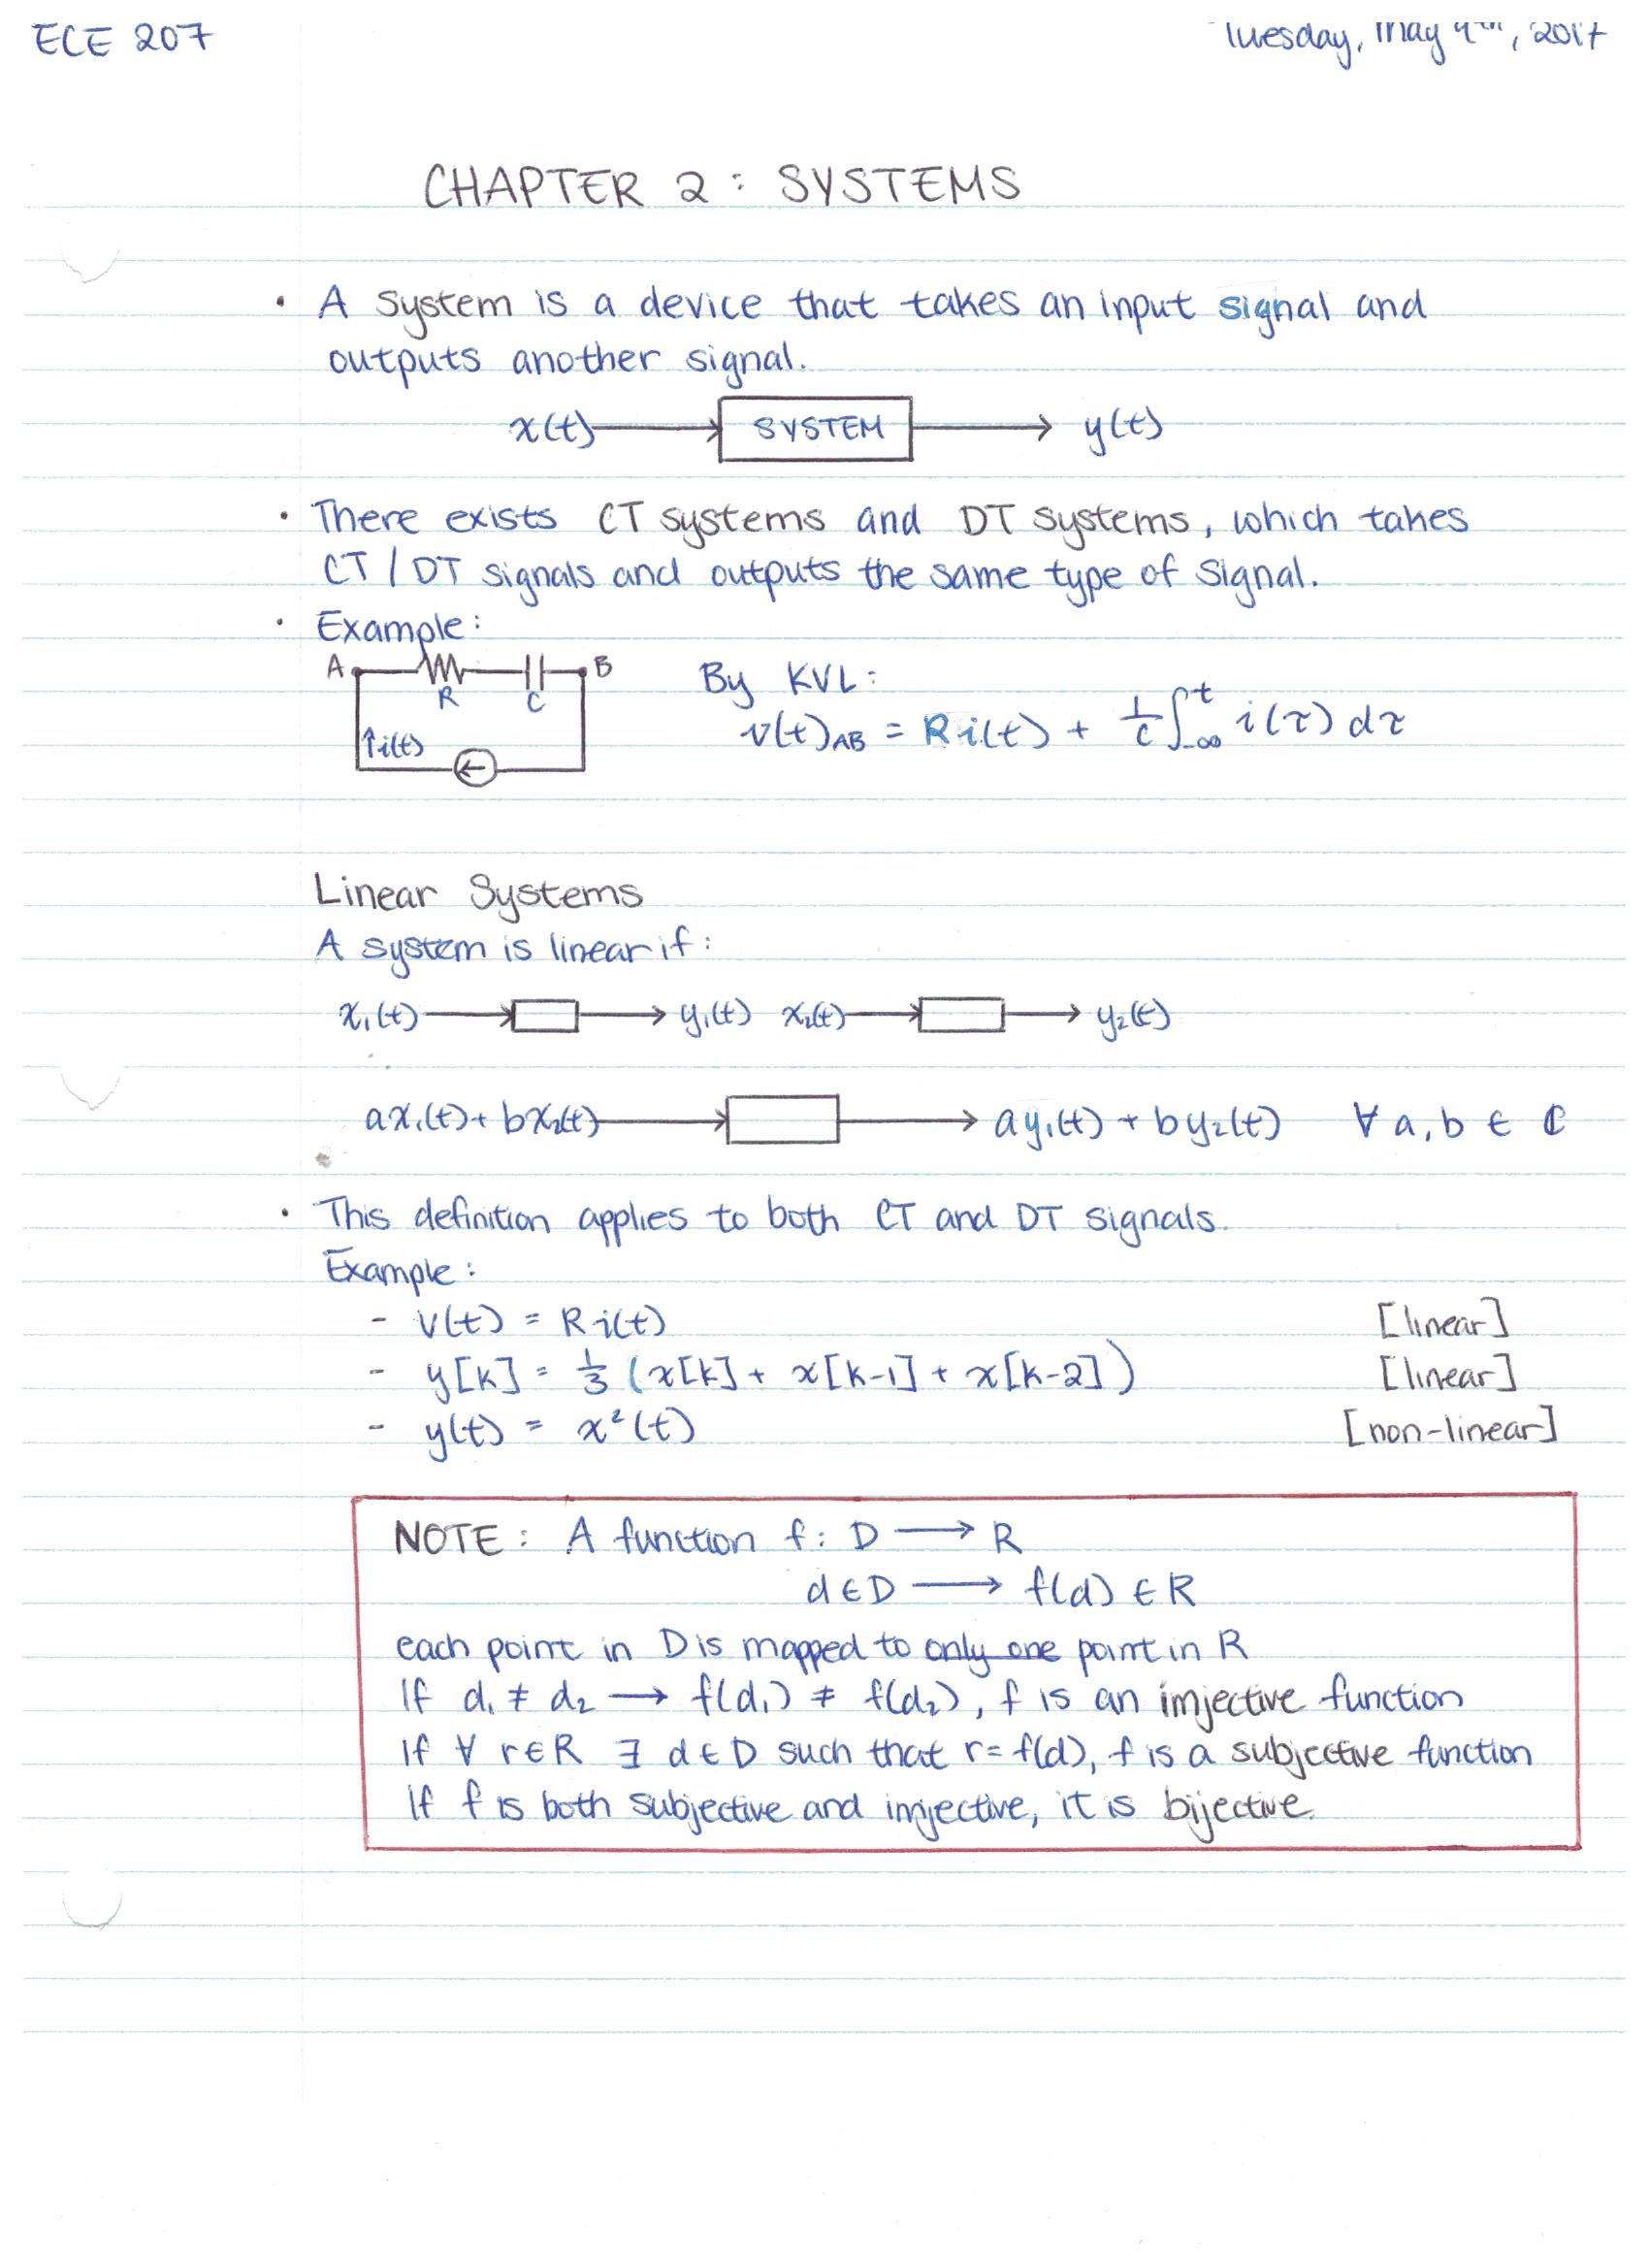 ECE 207
Tuesday, May 9th, 2017
CHAPTER 2 : SYSTEMS
• A system is a device that takes an input signal and
outputs another signal.
x(t) → SYSTEM → y(t)
• There exists CT systems and DT systems, which takes
CT / DT signals and outputs the same type of signal.
• Example:
A R C B
↑i(t)
By KVL:
v(t)AB = Ri(t) + 1/C ∫_-∞^t i(τ) dτ
Linear Systems
A system is linear if:
x₁(t) → → y₁(t) x₂(t) → → y₂(t)
ax₁(t) + bx₂(t) → → ay₁(t) + by₂(t) ∀ a, b ∈ ℂ
• This definition applies to both CT and DT signals.
Example:
- v(t) = Ri(t) [linear]
- y[k] = 1/3 (x[k] + x[k-1] + x[k-2]) [linear]
- y(t) = x²(t) [non-linear]
NOTE: A function f: D → R
d ∈ D → f(d) ∈ R
each point in D is mapped to only one point in R
If d₁ ≠ d₂ → f(d₁) ≠ f(d₂), f is an imjective function
If ∀ r ∈ R ∃ d ∈ D such that r = f(d), f is a subjective function
If f is both subjective and imjective, it is bijective.